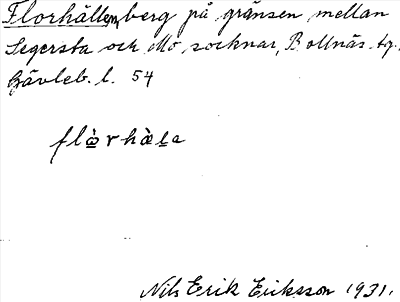 Florhällen, berg på gränsen mellan
Segersta och Mo socknar, Bollnäs tg.
Gävleb. l. 54
Nils Erik Eriksson 1931.